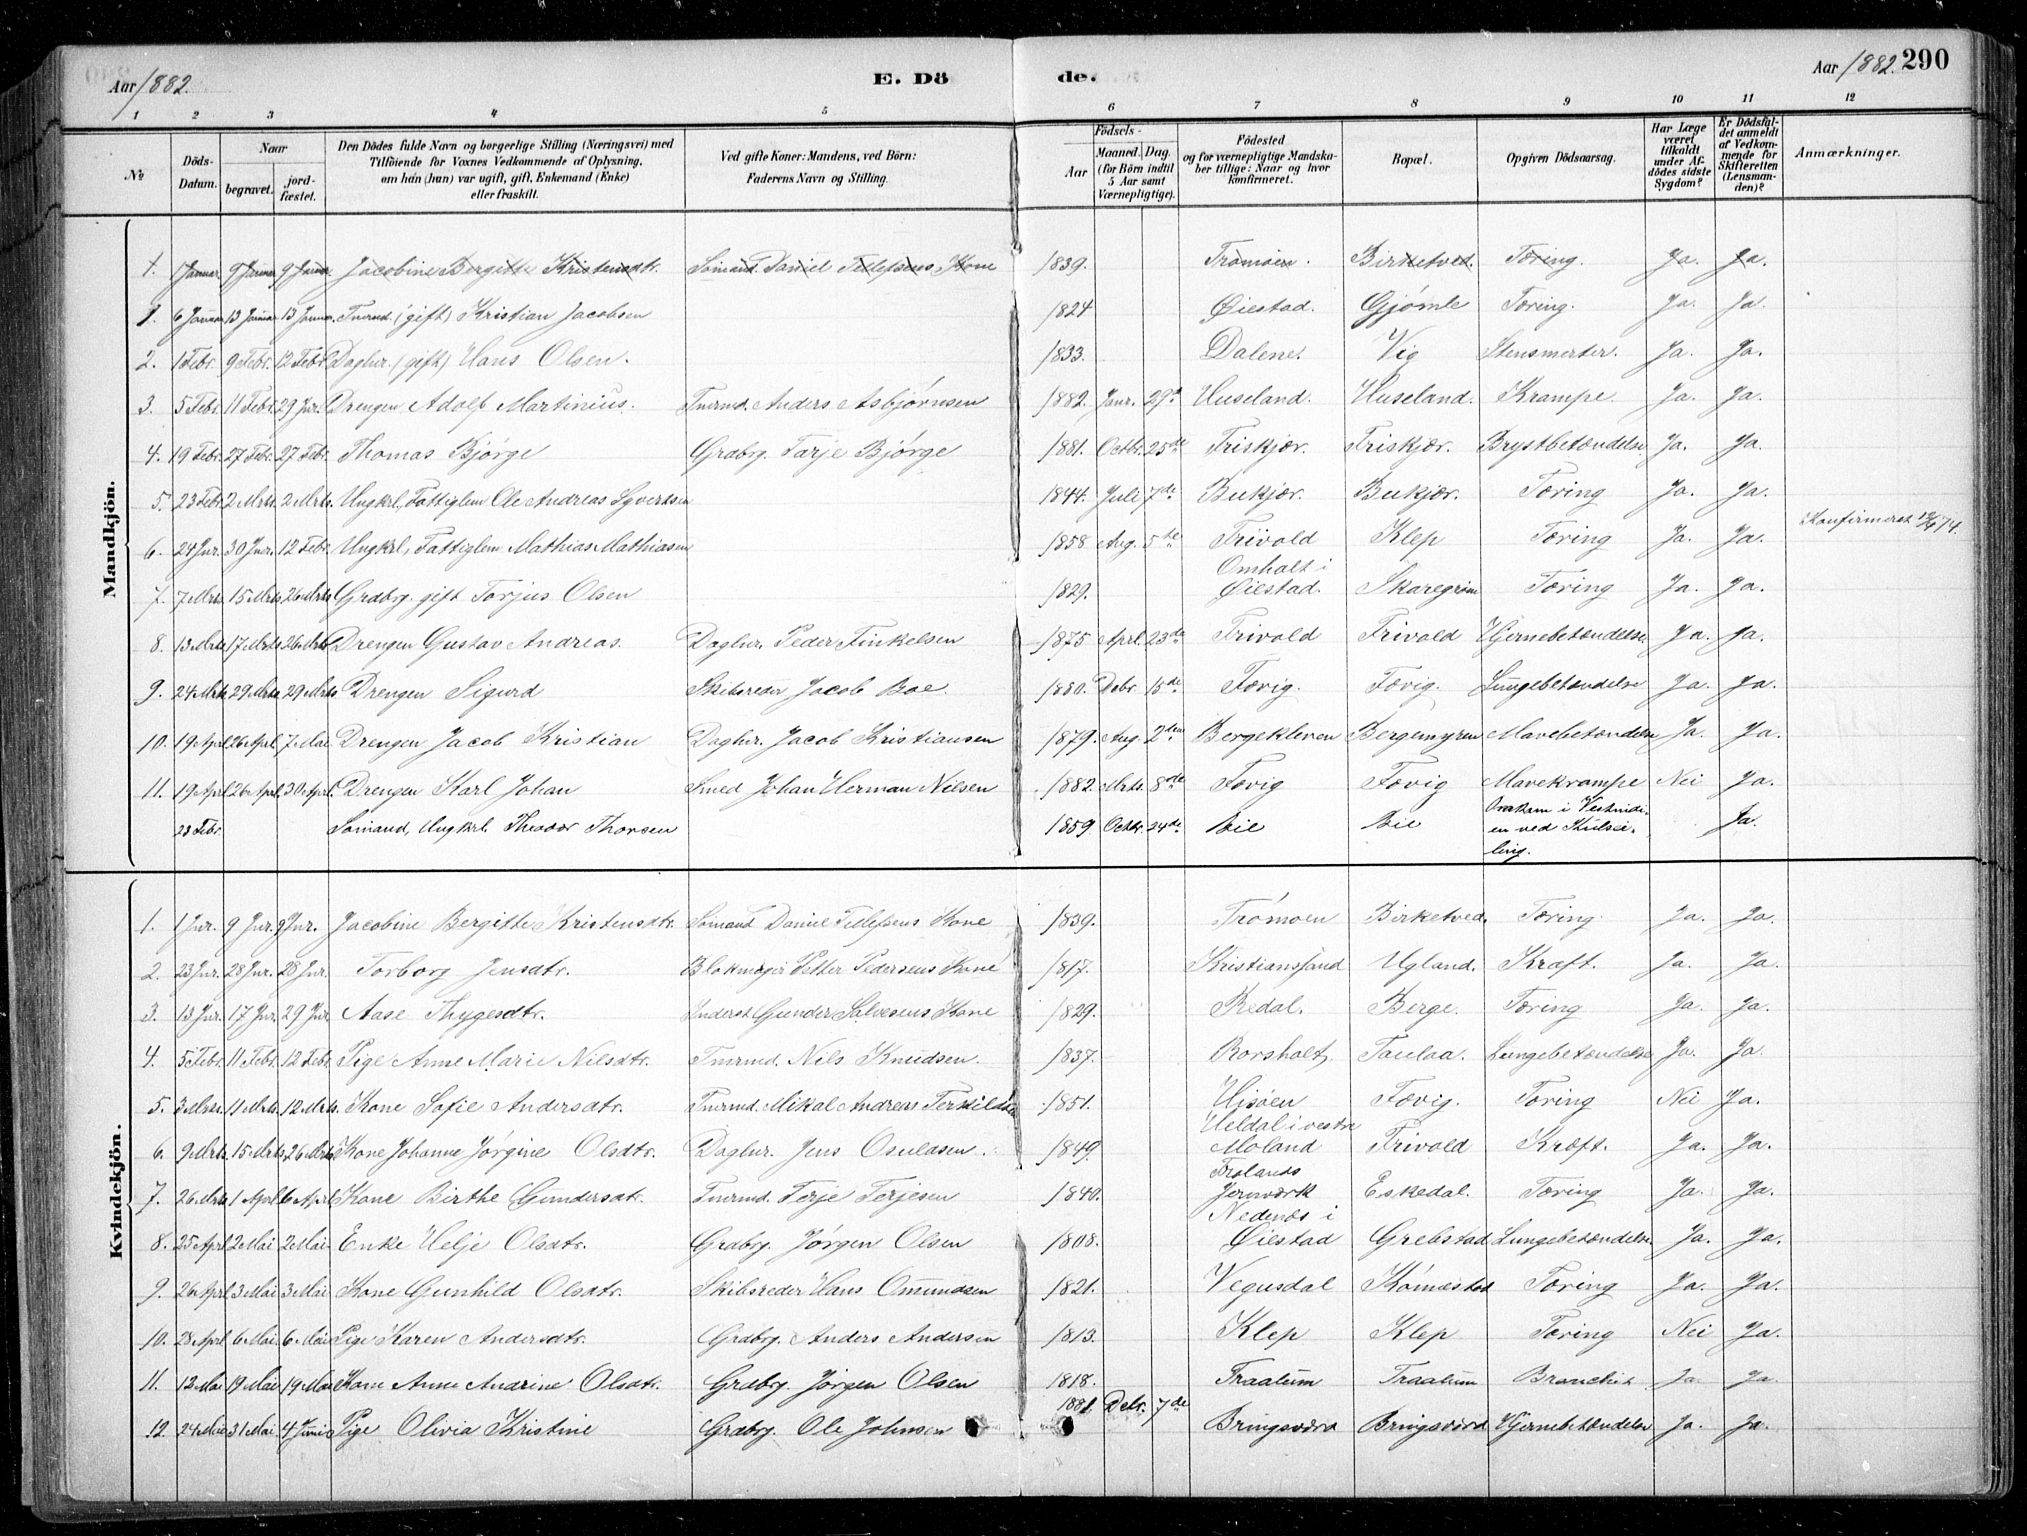 Aar 1882. E. Dö de. Aar 1882. 290
1 2 3 4 5 6 7 8 9 10 11 12
№ Döds-Datum. Naar begravet. jord-fæstet. Den Dödes fulde Navn og borgerlige Stilling (Næringsvei) med Tilföiende for Voxnes Vedkommende af Oplysning, om han (hun) var ugift, gift, Enkemand (Enke) eller fraskilt. Ved gifte Koner: Mandens, ved Börn: Faderens Navn og Stilling. Födsels- Aar Maaned. Dag. (for Börn indtil 5 Aar samt Værnepligtige). Födested og for værnepligtige Mandskaber tillige: Naar og hvor konfirmeret. Bopæl. Opgiven Dödsaarsag. Har Læge været tilkaldt under Afdödes sidste Sygdom? Er Dödsfaldet anmeldt af Vedkommende for Skifteretten (Lensmanden)? Anmærkninger.
Mandkjön.
1. 1 Januar 9 Januar 9 Januar Jacobine Bergitte Kristensdtr. Sömand Daniel Tellefsens Kone 1839. Tromöen. Birketved. Tæring. Ja. Ja.
1. 6 Januar 13 Januar 13 Januar. Tmrmd. (gift) Kristian Jacobsen 1824 Öiestad. Gjömle Tæring. Ja. Ja.
2. 1 Febr. 9 Febr. 12 Febr. Daglnr. (gift) Hans Olsen. 1833. Dalene. Vig Stensmerter. Ja. Ja.
3. 5 Febr. 11 Febr. 29 Jnr. Drengen Adolf Martinius. Tmrmd. Anders Asbjørnsen 1882. Janr. 29de Huseland. Huseland. Krampe. Ja. Ja.
4. 19 Febr. 27 Febr. 27 Febr. Thomas Bjørge Grdbrg. Tarje Bjørge 1881. Octbr. 25de Friskjær. Friskjær. Brystbetændelse Ja. Ja.
5. 23 Febr. 2 Mrts. 2 Mrts. Ungkrl, Fattiglem Ole Andreas Syvertsen 1844. Juli 7de Bukjær. Bukjær. Tæring Ja. Ja.
6. 24 Jnr. 30 Jnr. 12 Febr. Ungkrl, Fattiglem Mathias Mathiasen 1858 Aug. 5te Trivold Klep Tæring Ja. Ja. Konfirmeret 74.
7. 7 Mrts. 15 Mrts. 26 Mrts Grdbrg. gift Torjus Olsen 1829. Omholt i Öiestad. Skaregröm Tæring Ja. Ja.
8. 13 Mrts 17 Mrts 26 Mrts Drengen Gustav Andreas. Daglnr. Peder Finkelsen 1875 Aprl. 23de Trivold Trivold Hjernebetændelse Ja. Ja.
9. 24 Mrts 29 Mrts 29 Mrts Drengen Sigurd Skibsreder Jacob Boe. 1880. Debr. 15de Fævig. Fævig. Lungebetændelse Ja. Ja.
10. 19 Aprl 26 Aprl 7 Mai Drengen Jacob Kristian Daglnr. Jacob Kristiansen 1879. Aug. 2den Bergekleven Bergemyren Mavebetændelse Ja. Ja.
11. 19 Aprl 26 Aprl 30 Aprl. Drengen Karl Johan Smed Johan Herman Nilsen 1882. Mrts. 8de Fævig Fævig Mavekrampe Nei Ja.
23 Febr. Sömand, Ungkrl. Theodor Thorsen 1859 Octbr. 24de Bie Bie Omkom i Vestindien ved Kulseiling. Ja.
Kvindekjön.
1. 1 Jnr. 9 Jnr. 9 Jnr. Jacobine Bergitte Kristensdtr. Sömand Daniel Tellefsens Kone 1839. Trömoen Birketved. Tæring. Ja. Ja.
2. 23 Jnr. 28 Jnr. 28 Jnr. Torborg Jensdtr. Blokmager Petter Pedersens Kone 1817. Kristianssand Ugland. Kræft. Ja. Ja.
3. 13 Jnr. 17 Jnr. 29 Jnr. Aase Thygesdtr. Inderst Gunder Salvesens Kone 1829. Redal. Berge. Tæring Ja. Ja.
4. 5 Febr. 11 Febr. 12 Febr. Pige Anne Marie Nilsdtr. Tmrmd. Nils Knudsen. 1837. Rorsholt, Taulaa. Lungebetændelse Ja. Ja
5. 3 Mrts. 11 Mrts. 12 Mrts. Kone Sofie Andersdtr. Tmrmd. Mikal Andreas Terkildsen 1851. Hisöen Fævig. Tæring Nei Ja.
6. 9 Mrts. 15 Mrts. 26 Mrts Kone Johanne Jørgine Olsdtr. Daglnr. Jens Osulasen. 1849. Heldal i vestre Moland Trivold Kræft. Ja. Ja.
7. 26 Mrts 1 Aprl 6 Aprl Kone Birthe Gundersdtr. Tmrmd. Terje Terjesen 1840. Frolands Jernværk Eskedal. Tæring Ja. Ja.
8. 25 Aprl 2 Mai 2 Mai. Enke Helje Olsdtr. Grdbrg. Jørgen Olsen 1808. Nedenæs i Öiestad Grebstad Lungebetændelse Ja. Ja.
9. 26 Aprl 3 Mai 3 Mai Kone Gunhild Olsdtr. Skibsreder Hans Omundsen 1821. Vegusdal Kömæstad Tæring Ja. Ja.
10. 28 Aprl 6 Mai 6 Mai Pige Karen Andersdtr. Grdbrg. Anders Andersen 1813. Klep Klep Tæring Nei Ja.
11. 12 Mai 19 Mai 19 Mai Kone Anne Andrine Olsdtr. Grdbrg. Jørgen Olsen 1818. Fraalum Fraalum Bronchit Ja. Ja.
12. 24 Mai 31 Mai 4 Juni Pige Olivia Kristine Grdbrg. Ole Johnsen 1881. Debr. 7de Bringsværd Bringsværd Hjernebetændelse Ja. Ja.